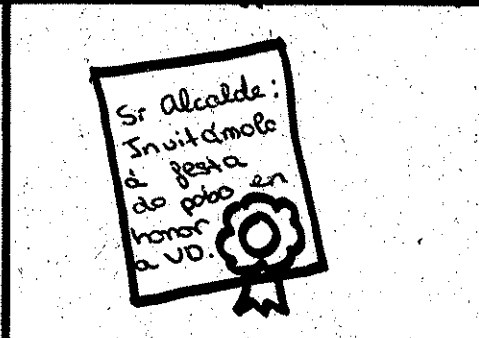 Sr Alcalde:
Invitámolo
á festa
do pobo en
honor
a VD.